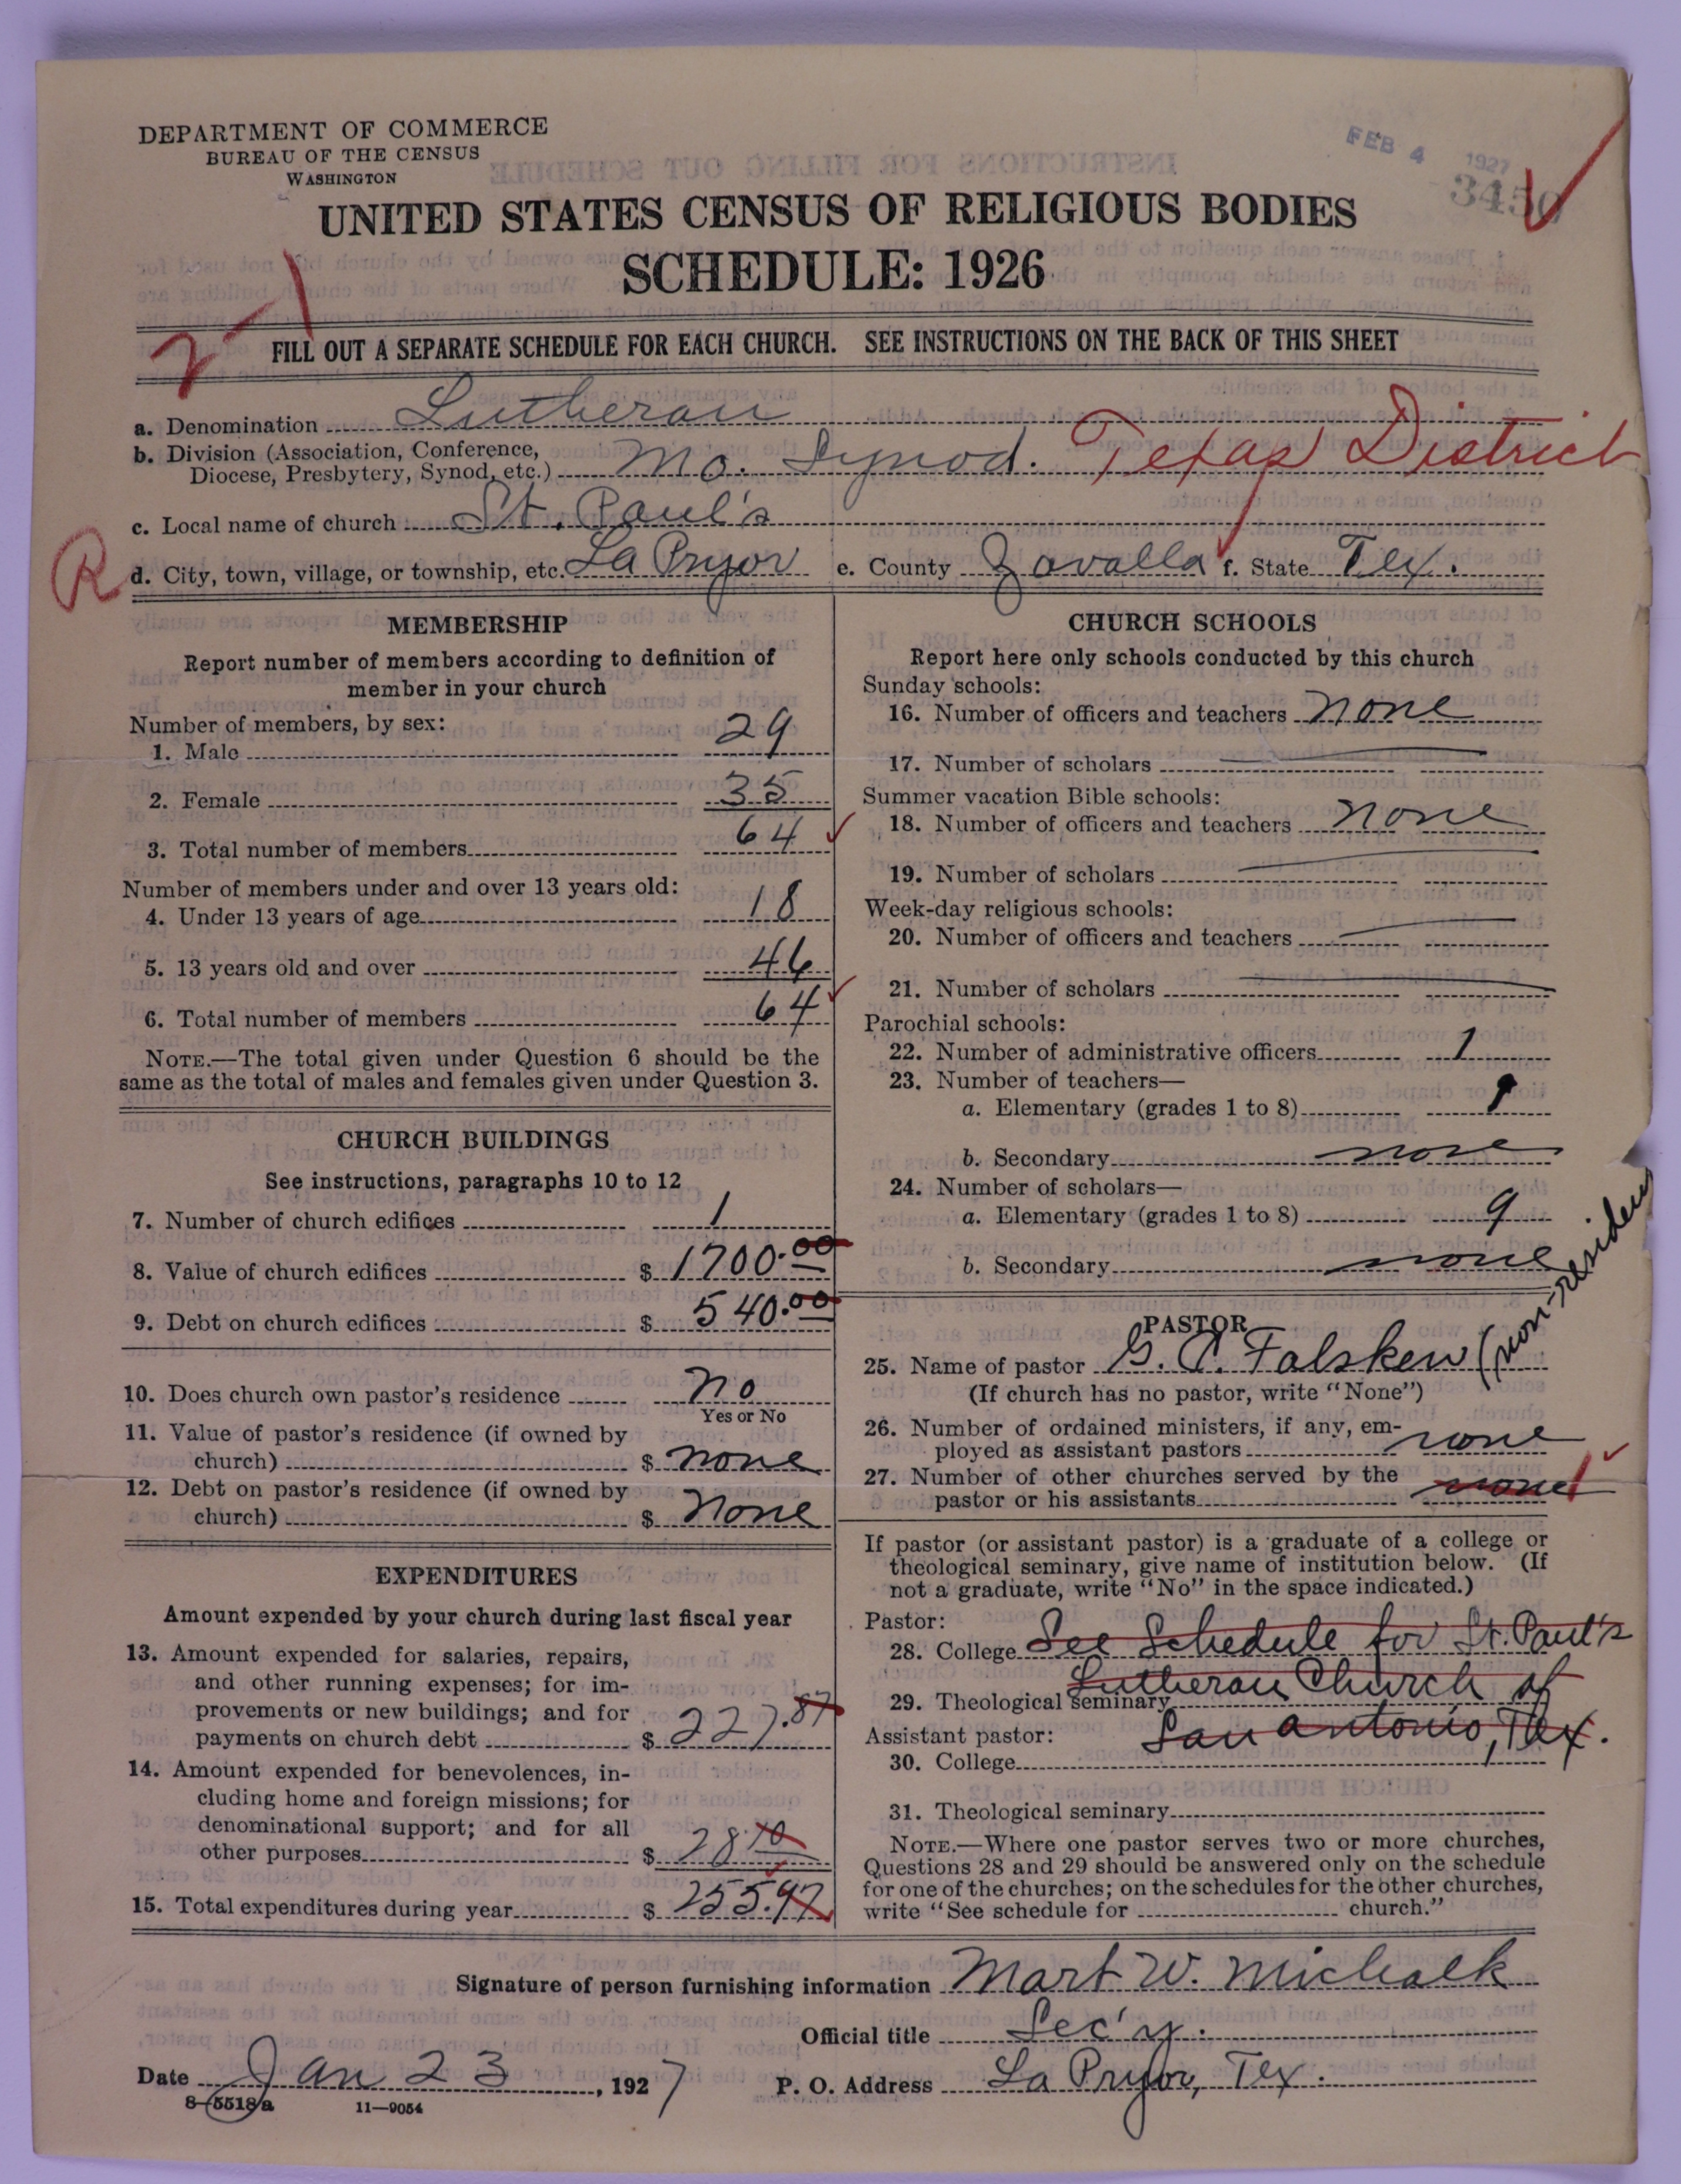 DEPARTMENT OF COMMERCE
BUREAU OF THE CENSUS
WASHINGTON
FEB 4 1927
3450
UNITED STATES CENSUS OF RELIGIOUS BODIES
SCHEDULE: 1926
FILL OUT A SEPARATE SCHEDULE FOR EACH CHURCH. SEE INSTRUCTIONS ON THE BACK OF THIS SHEET
a. Denomination Lutheran
b. Division (Association, Conference,
Diocese, Presbytery, Synod, etc.) Mo. Synod. Texas District
c. Local name of church St. Paul's
R
d. City, town, village, or township, etc. La Pryor e. County Zavalla f. State Tex.
MEMBERSHIP
Report number of members according to definition of
member in your church
Number of members, by sex:
1. Male 29
2. Female 35
3. Total number of members 64
Number of members under and over 13 years old:
4. Under 13 years of age 18
5. 13 years old and over 46
6. Total number of members 64
NOTE.—The total given under Question 6 should be the
same as the total of males and females given under Question 3.
CHURCH BUILDINGS
See instructions, paragraphs 10 to 12
7. Number of church edifices 1
8. Value of church edifices $ 1700.00
9. Debt on church edifices $ 540.00
10. Does church own pastor's residence No
Yes or No
11. Value of pastor's residence (if owned by
church) $ none
12. Debt on pastor's residence (if owned by
church) $ None
EXPENDITURES
Amount expended by your church during last fiscal year
13. Amount expended for salaries, repairs,
and other running expenses; for im-
provements or new buildings; and for
payments on church debt $ 227.87
14. Amount expended for benevolences, in-
cluding home and foreign missions; for
denominational support; and for all
other purposes $ 28.10
15. Total expenditures during year $ 255.97
CHURCH SCHOOLS
Report here only schools conducted by this church
Sunday schools:
16. Number of officers and teachers none
17. Number of scholars
Summer vacation Bible schools:
18. Number of officers and teachers none
19. Number of scholars
Week-day religious schools:
20. Number of officers and teachers
21. Number of scholars
Parochial schools:
22. Number of administrative officers 1
23. Number of teachers—
a. Elementary (grades 1 to 8) 1
b. Secondary none
24. Number of scholars—
a. Elementary (grades 1 to 8) 9
b. Secondary none
PASTOR
25. Name of pastor G. P. Falsken (non-resident
(If church has no pastor, write "None")
26. Number of ordained ministers, if any, em-
ployed as assistant pastors none
27. Number of other churches served by the
pastor or his assistants none 1
If pastor (or assistant pastor) is a graduate of a college or
theological seminary, give name of institution below. (If
not a graduate, write "No" in the space indicated.)
Pastor:
28. College See Schedule for St. Paul's
29. Theological seminary Lutheran Church of
Assistant pastor: San Antonio, Tex.
30. College
31. Theological seminary
NOTE.—Where one pastor serves two or more churches,
Questions 28 and 29 should be answered only on the schedule
for one of the churches; on the schedules for the other churches,
write "See schedule for church."
Signature of person furnishing information Mart W. Michalk
Official title Sec'y.
Date Jan 23, 1927 P. O. Address La Pryor, Tex.
8-5518a 11—9054